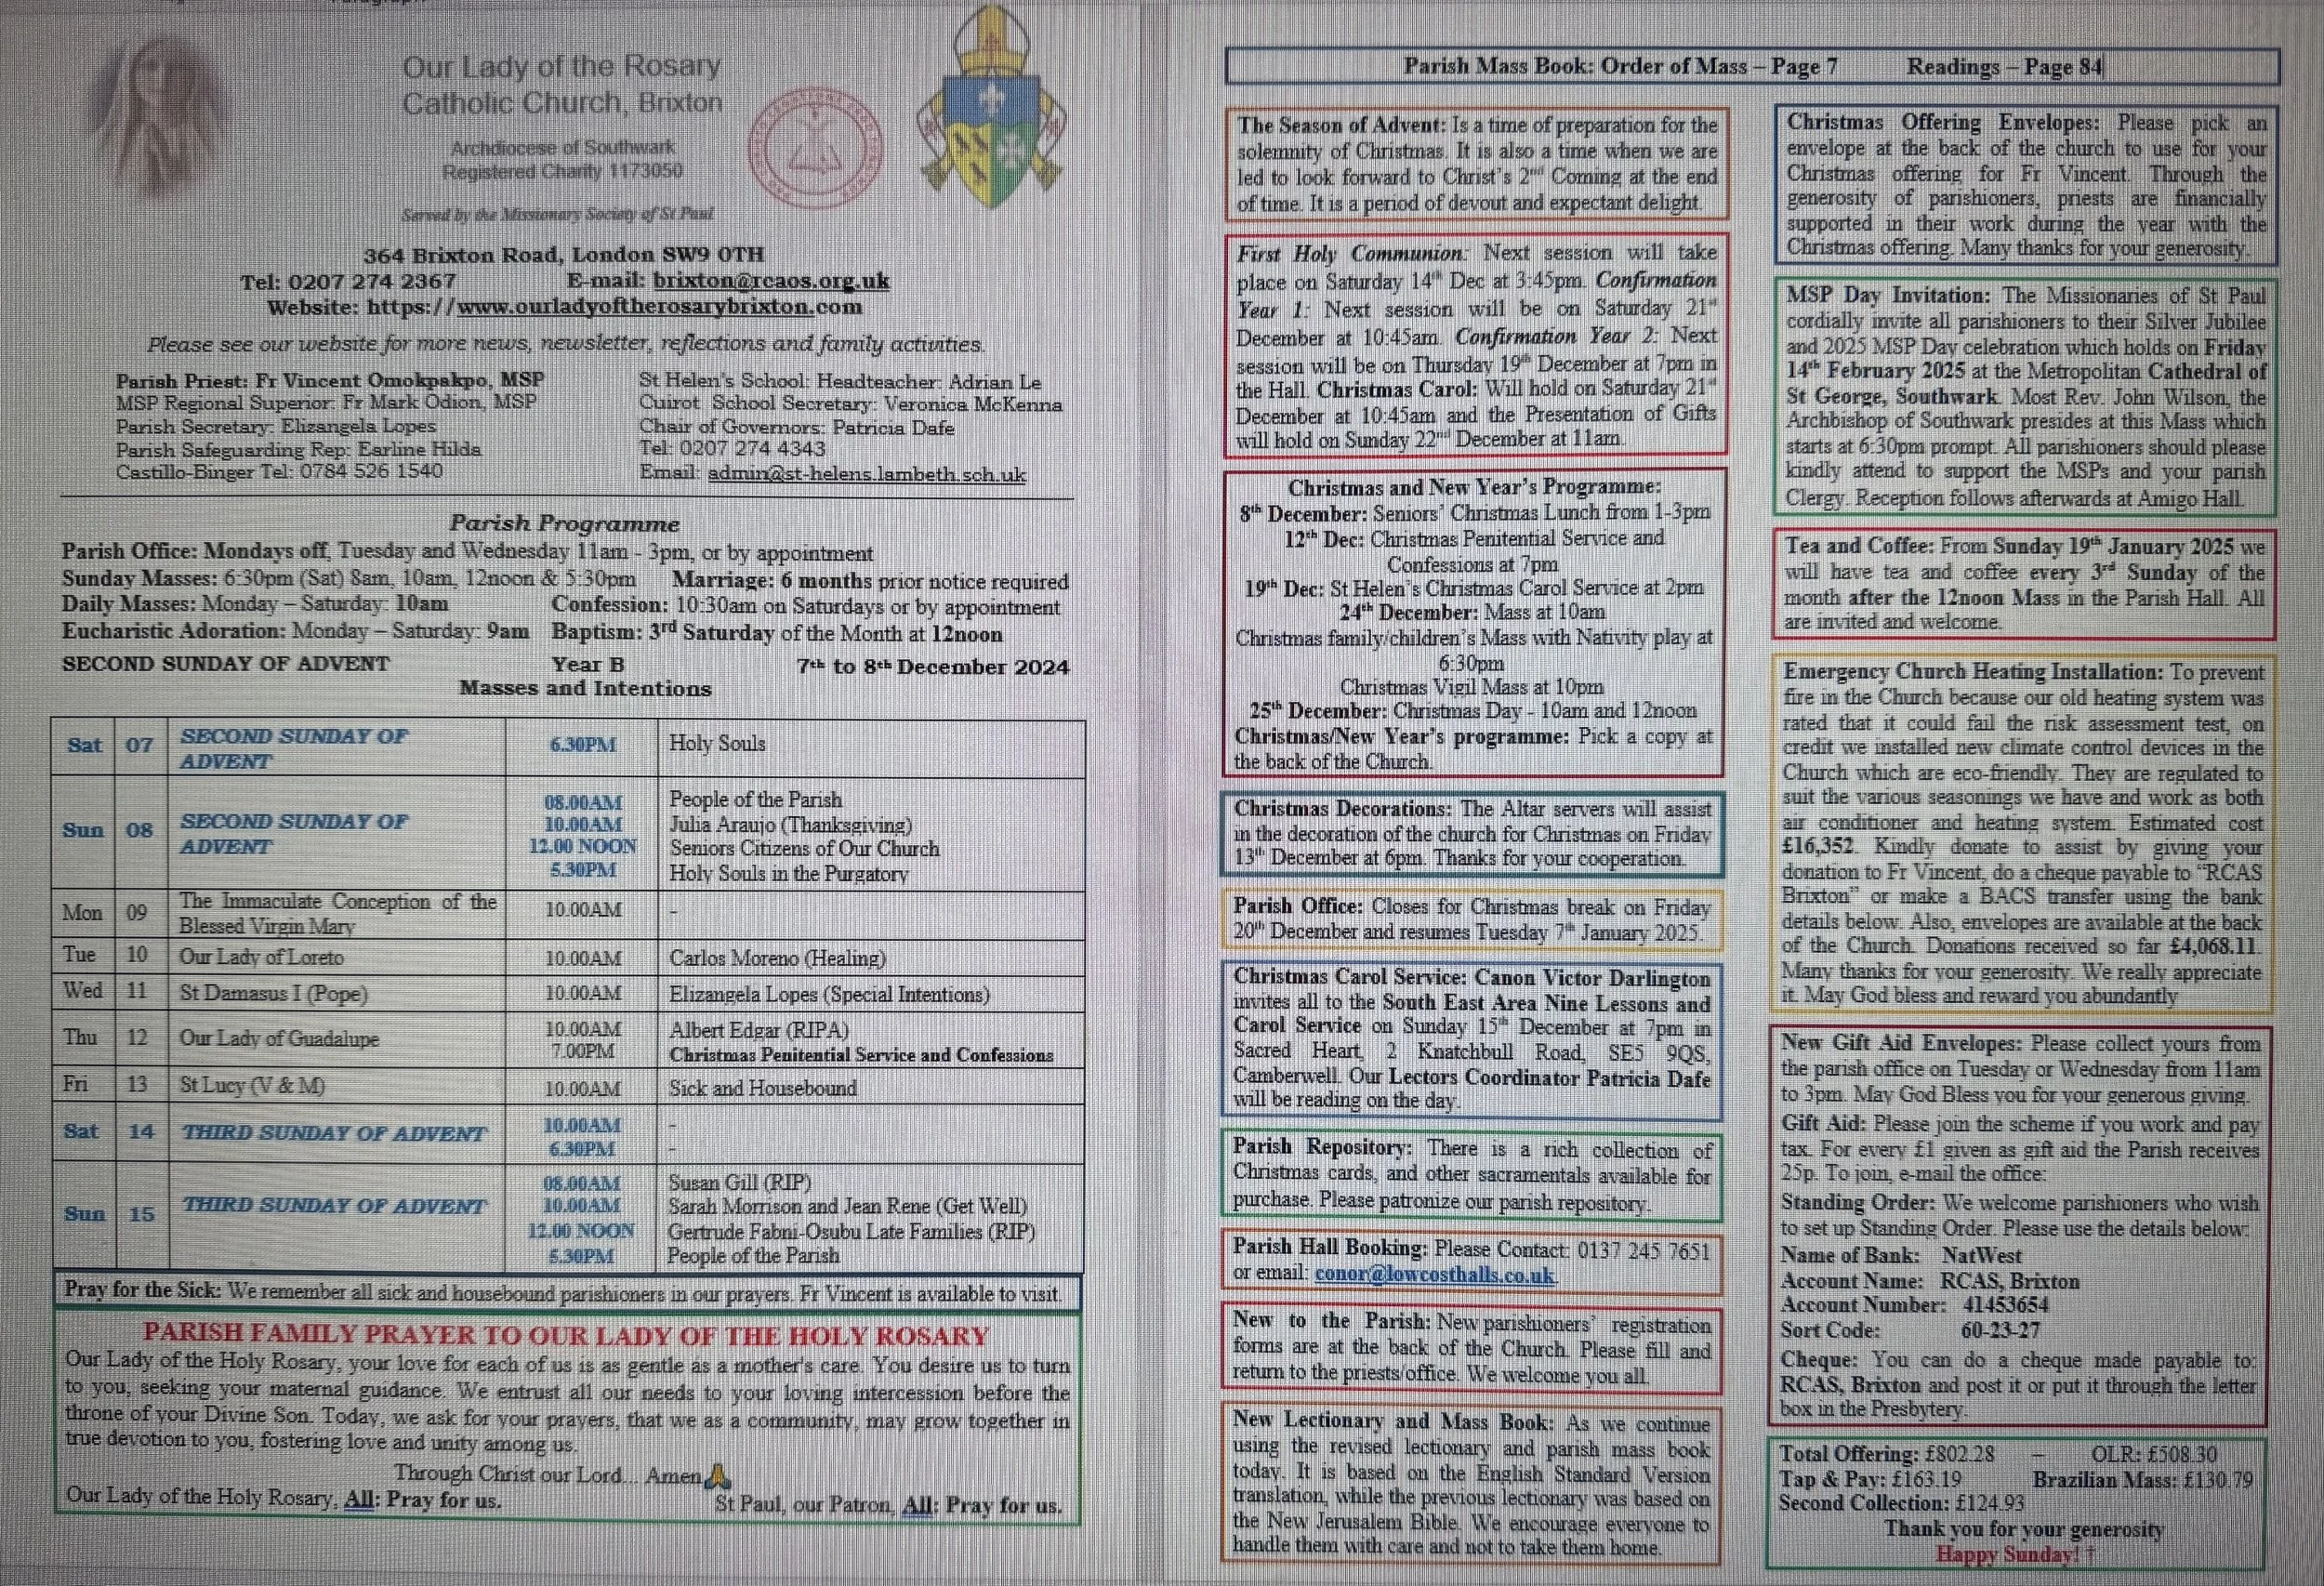 Our Lady of the Rosary
Catholic Church, Brixton
Archdiocese of Southwark
Registered Charity 1173050
Served by the Missionary Society of St Paul
364 Brixton Road, London SW9 0TH
Tel: 0207 274 2367 E-mail: brixton@rcaos.org.uk
Website: https://www.ourladyoftherosarybrixton.com
Please see our website for more news, newsletter, reflections and family activities.
Parish Priest: Fr Vincent Omokpakpo, MSP
MSP Regional Superior: Fr Mark Odion, MSP
Parish Secretary: Elizangela Lopes
Parish Safeguarding Rep: Earline Hilda
Castillo-Binger Tel: 0784 526 1540
St Helen's School: Headteacher: Adrian Le
Cuirot School Secretary: Veronica McKenna
Chair of Governors: Patricia Dafe
Tel: 0207 274 4343
Email: admin@st-helens.lambeth.sch.uk
Parish Programme
Parish Office: Mondays off, Tuesday and Wednesday 11am - 3pm, or by appointment
Sunday Masses: 6:30pm (Sat) 8am, 10am, 12noon & 5:30pm Marriage: 6 months prior notice required
Daily Masses: Monday – Saturday: 10am Confession: 10:30am on Saturdays or by appointment
Eucharistic Adoration: Monday – Saturday: 9am Baptism: 3rd Saturday of the Month at 12noon
SECOND SUNDAY OF ADVENT Year B 7th to 8th December 2024
Masses and Intentions
Sat 07 SECOND SUNDAY OF ADVENT 6.30PM Holy Souls
Sun 08 SECOND SUNDAY OF ADVENT
08.00AM People of the Parish
10.00AM Julia Araujo (Thanksgiving)
12.00 NOON Seniors Citizens of Our Church
5.30PM Holy Souls in the Purgatory
Mon 09 The Immaculate Conception of the Blessed Virgin Mary 10.00AM -
Tue 10 Our Lady of Loreto 10.00AM Carlos Moreno (Healing)
Wed 11 St Damasus I (Pope) 10.00AM Elizangela Lopes (Special Intentions)
Thu 12 Our Lady of Guadalupe 10.00AM Albert Edgar (RIPA)
7.00PM Christmas Penitential Service and Confessions
Fri 13 St Lucy (V & M) 10.00AM Sick and Housebound
Sat 14 THIRD SUNDAY OF ADVENT 10.00AM -
6.30PM -
Sun 15 THIRD SUNDAY OF ADVENT
08.00AM Susan Gill (RIP)
10.00AM Sarah Morrison and Jean Rene (Get Well)
12.00 NOON Gertrude Fabni-Osubu Late Families (RIP)
5.30PM People of the Parish
Pray for the Sick: We remember all sick and housebound parishioners in our prayers. Fr Vincent is available to visit.
PARISH FAMILY PRAYER TO OUR LADY OF THE HOLY ROSARY
Our Lady of the Holy Rosary, your love for each of us is as gentle as a mother's care. You desire us to turn
to you, seeking your maternal guidance. We entrust all our needs to your loving intercession before the
throne of your Divine Son. Today, we ask for your prayers, that we as a community, may grow together in
true devotion to you, fostering love and unity among us.
Through Christ our Lord... Amen🙏
Our Lady of the Holy Rosary, All: Pray for us. St Paul, our Patron, All: Pray for us.
Parish Mass Book: Order of Mass – Page 7 Readings – Page 84
The Season of Advent: Is a time of preparation for the
solemnity of Christmas. It is also a time when we are
led to look forward to Christ's 2nd Coming at the end
of time. It is a period of devout and expectant delight.
First Holy Communion: Next session will take
place on Saturday 14th Dec at 3:45pm. Confirmation
Year 1: Next session will be on Saturday 21st
December at 10:45am. Confirmation Year 2: Next
session will be on Thursday 19th December at 7pm in
the Hall. Christmas Carol: Will hold on Saturday 21st
December at 10:45am and the Presentation of Gifts
will hold on Sunday 22nd December at 11am.
Christmas and New Year's Programme:
8th December: Seniors' Christmas Lunch from 1-3pm
12th Dec: Christmas Penitential Service and
Confessions at 7pm
19th Dec: St Helen's Christmas Carol Service at 2pm
24th December: Mass at 10am
Christmas family/children's Mass with Nativity play at
6:30pm
Christmas Vigil Mass at 10pm
25th December: Christmas Day - 10am and 12noon
Christmas/New Year's programme: Pick a copy at
the back of the Church.
Christmas Decorations: The Altar servers will assist
in the decoration of the church for Christmas on Friday
13th December at 6pm. Thanks for your cooperation.
Parish Office: Closes for Christmas break on Friday
20th December and resumes Tuesday 7th January 2025.
Christmas Carol Service: Canon Victor Darlington
invites all to the South East Area Nine Lessons and
Carol Service on Sunday 15th December at 7pm in
Sacred Heart, 2 Knatchbull Road, SE5 9QS,
Camberwell. Our Lectors Coordinator Patricia Dafe
will be reading on the day.
Parish Repository: There is a rich collection of
Christmas cards, and other sacramentals available for
purchase. Please patronize our parish repository.
Parish Hall Booking: Please Contact: 0137 245 7651
or email: conor@lowcosthalls.co.uk
New to the Parish: New parishioners' registration
forms are at the back of the Church. Please fill and
return to the priests/office. We welcome you all.
New Lectionary and Mass Book: As we continue
using the revised lectionary and parish mass book
today. It is based on the English Standard Version
translation, while the previous lectionary was based on
the New Jerusalem Bible. We encourage everyone to
handle them with care and not to take them home.
Christmas Offering Envelopes: Please pick an
envelope at the back of the church to use for your
Christmas offering for Fr Vincent. Through the
generosity of parishioners, priests are financially
supported in their work during the year with the
Christmas offering. Many thanks for your generosity.
MSP Day Invitation: The Missionaries of St Paul
cordially invite all parishioners to their Silver Jubilee
and 2025 MSP Day celebration which holds on Friday
14th February 2025 at the Metropolitan Cathedral of
St George, Southwark. Most Rev. John Wilson, the
Archbishop of Southwark presides at this Mass which
starts at 6:30pm prompt. All parishioners should please
kindly attend to support the MSPs and your parish
Clergy. Reception follows afterwards at Amigo Hall.
Tea and Coffee: From Sunday 19th January 2025 we
will have tea and coffee every 3rd Sunday of the
month after the 12noon Mass in the Parish Hall. All
are invited and welcome.
Emergency Church Heating Installation: To prevent
fire in the Church because our old heating system was
rated that it could fail the risk assessment test, on
credit we installed new climate control devices in the
Church which are eco-friendly. They are regulated to
suit the various seasonings we have and work as both
air conditioner and heating system. Estimated cost
£16,352. Kindly donate to assist by giving your
donation to Fr Vincent, do a cheque payable to "RCAS
Brixton" or make a BACS transfer using the bank
details below. Also, envelopes are available at the back
of the Church. Donations received so far £4,068.11.
Many thanks for your generosity. We really appreciate
it. May God bless and reward you abundantly
New Gift Aid Envelopes: Please collect yours from
the parish office on Tuesday or Wednesday from 11am
to 3pm. May God Bless you for your generous giving.
Gift Aid: Please join the scheme if you work and pay
tax. For every £1 given as gift aid the Parish receives
25p. To join, e-mail the office:
Standing Order: We welcome parishioners who wish
to set up Standing Order. Please use the details below:
Name of Bank: NatWest
Account Name: RCAS, Brixton
Account Number: 41453654
Sort Code: 60-23-27
Cheque: You can do a cheque made payable to:
RCAS, Brixton and post it or put it through the letter
box in the Presbytery.
Total Offering: £802.28 – OLR: £508.30
Tap & Pay: £163.19 Brazilian Mass: £130.79
Second Collection: £124.93
Thank you for your generosity
Happy Sunday! †